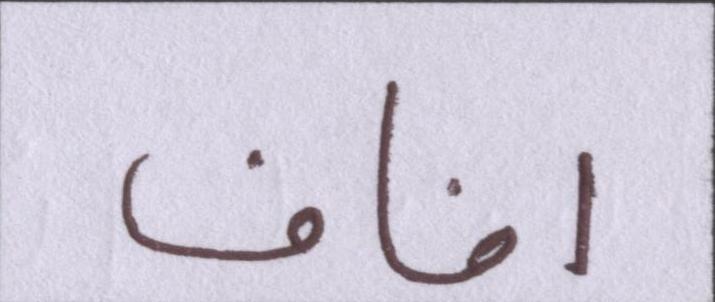 اضاف